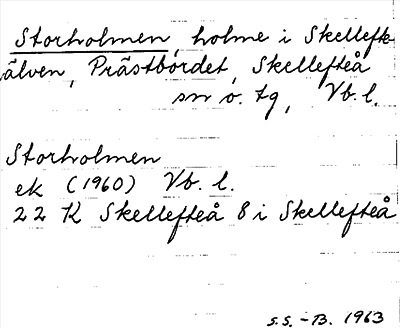 Storholmen, holme i Skellefte-
älven, Prästbordet, Skellefteå
sn o. tg, Vb. l.
Storholmen
ek (1960) Vb. l.
22 K Skellefteå 8 i Skellefteå
S.S. - B. 1963